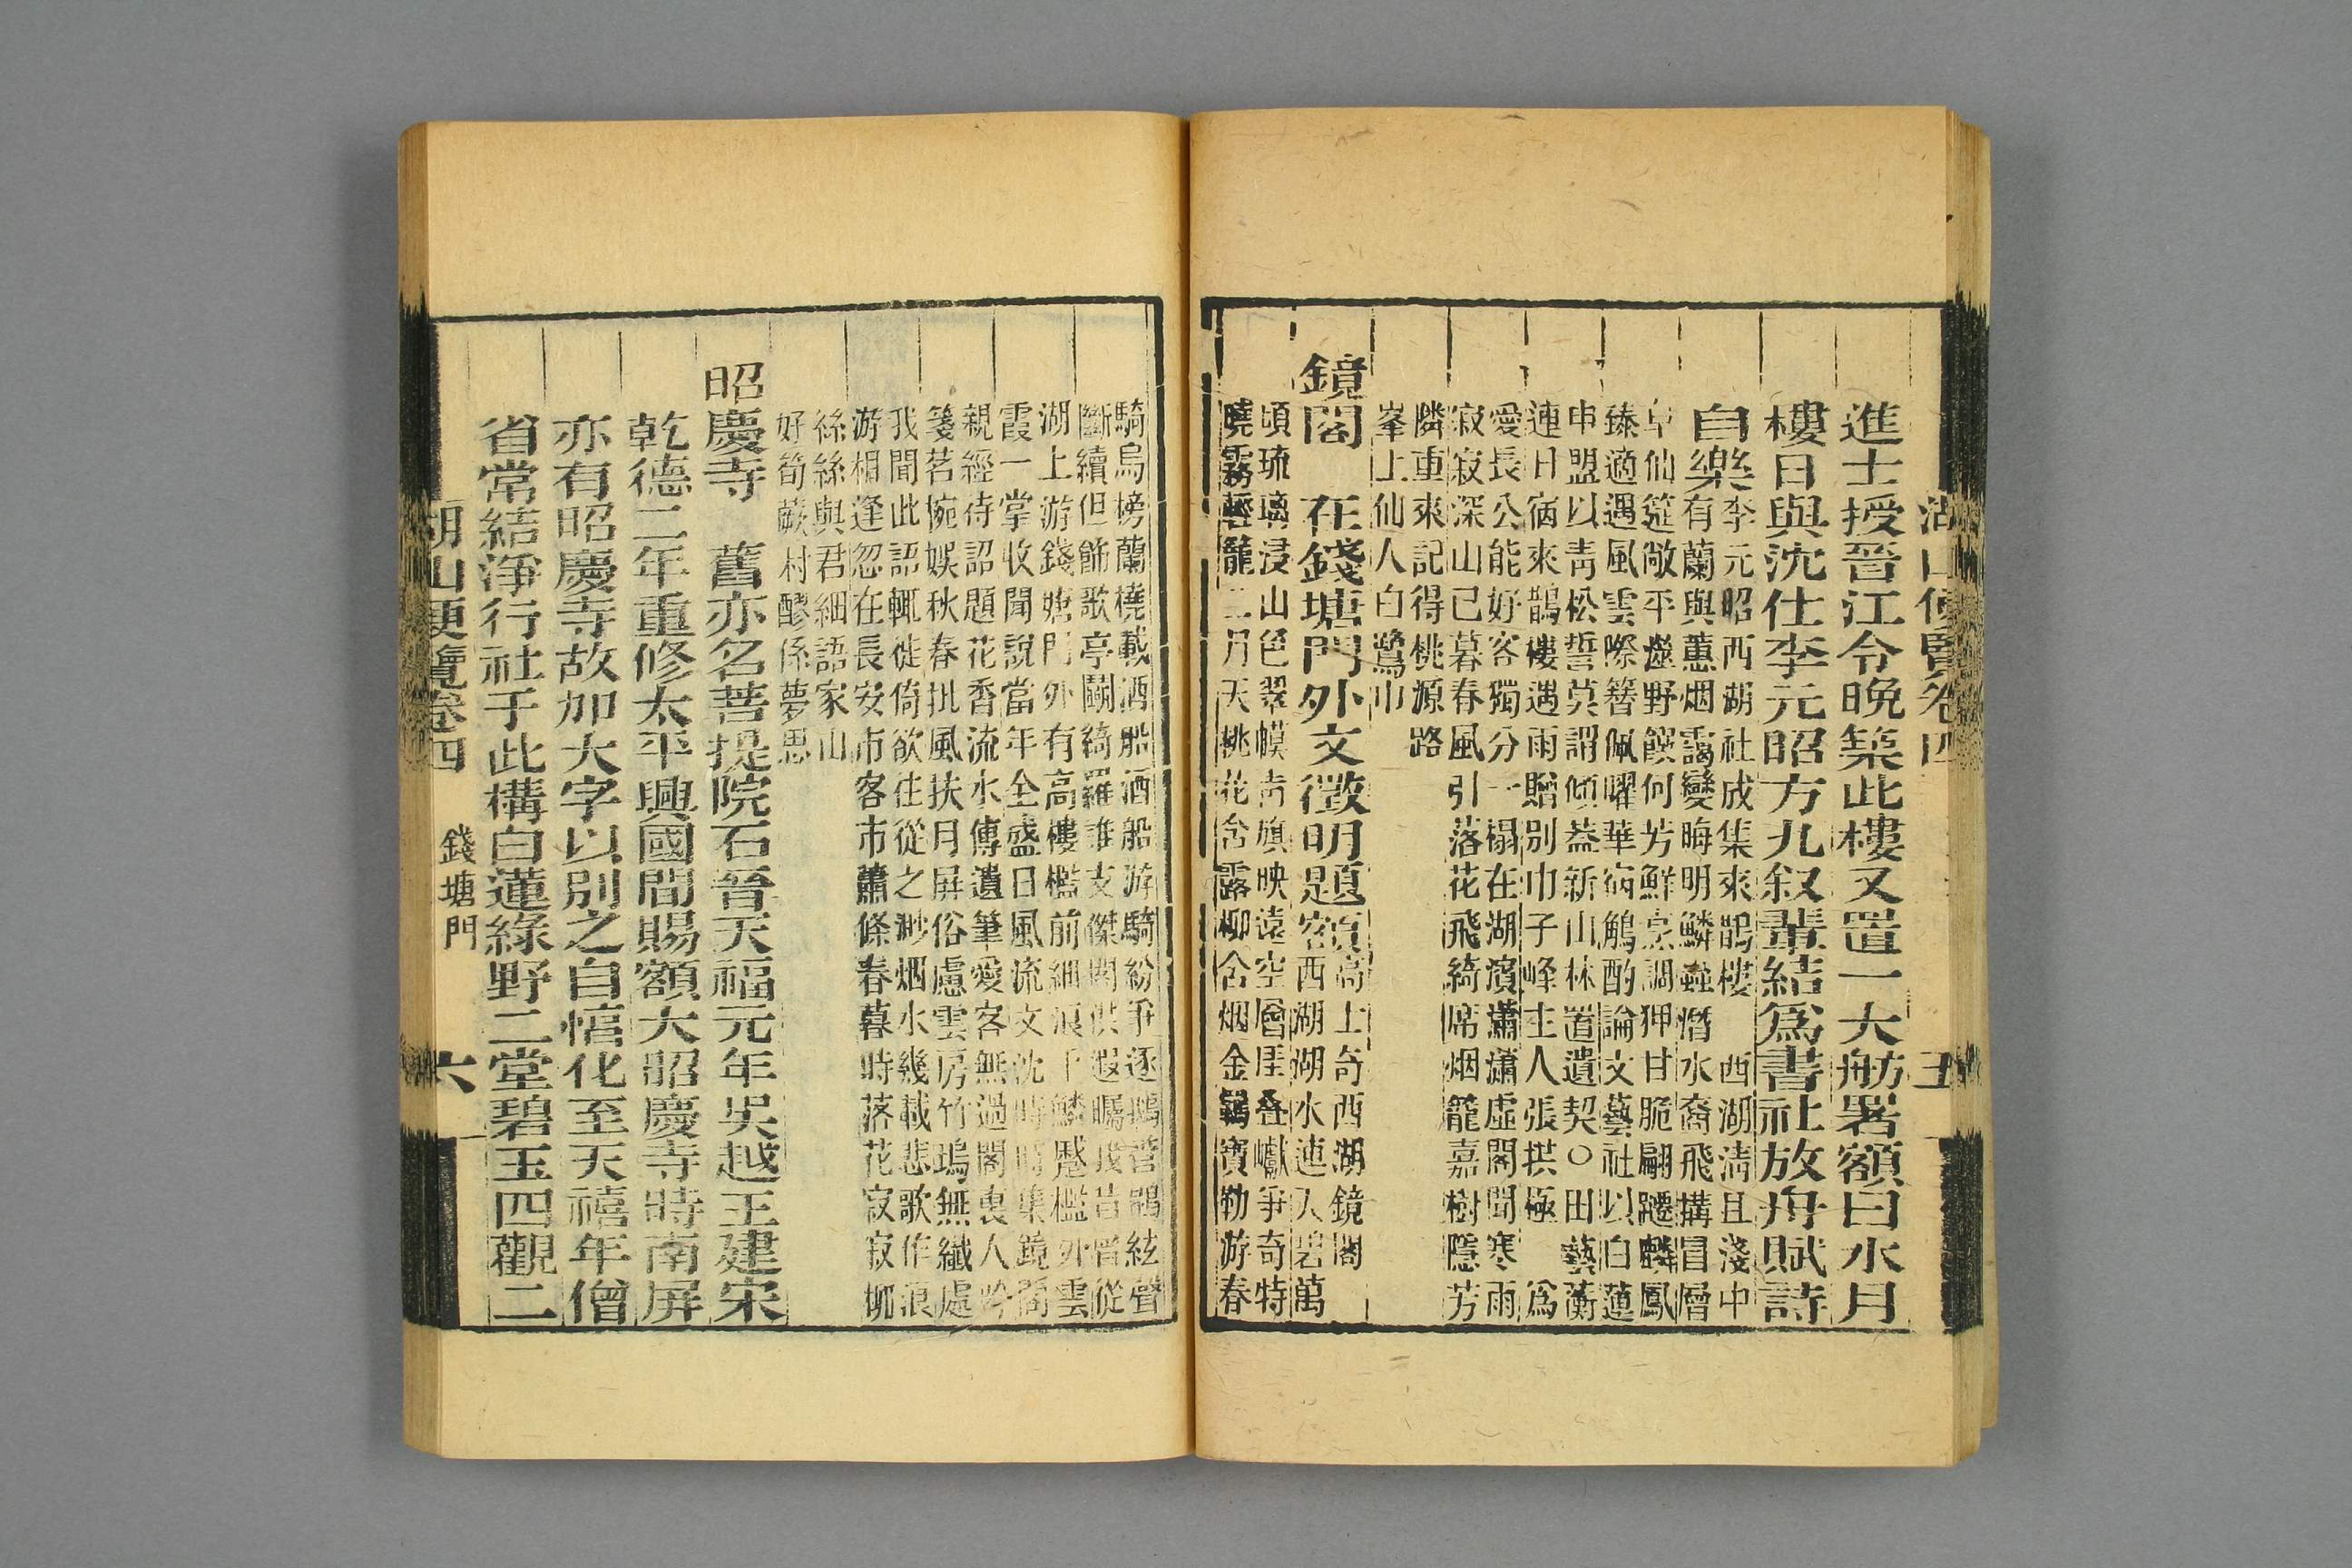 湖山便覽卷四 五
進士授晉江令晚築此樓又置一大舫署額曰水月
樓日與沈仕李元昭方九叙輩結爲書社放舟賦詩
自樂
李元昭西湖社成集來鵲樓 西湖清且淺中
有蘭與蕙烟靄變晦明鱗 潛水裔飛搆冒層
阜仙筵敞平 野饌何芳鮮烹調狎甘脆翩躚麟鳳
臻適遇風雲際簪佩曜華 觴酌論文藝社以白蓮
申盟以青松誓莫謂傾葢新山林置遺契○田藝蘅
連日宿來鵲樓遇雨贈別巾子峰主人張拱極 爲
愛長公能好客獨分一榻在湖濱瀟瀟虛閣聞寒雨
寂寂深山已暮春風引落花飛綺席烟籠嘉樹隱芳
隣重來記得桃源路
峯上仙人白鷺巾
鏡閣 在錢塘門外文徵明題額
高士奇西湖鏡閣
西湖湖水連天碧萬
頃琉璃浸山色翠幙青旗映遠空層崖叠巘爭奇特
曉霧輕籠二月天桃花含露柳含烟金羈寶勒游春
騎烏榜蘭橈載酒船酒船游騎紛爭逐鵾管鵾絃聲
斷續但飾歌亭鬬綺羅誰支傑閣供遐矚我昔曾從
湖上游錢塘門外有高樓檻前細浪千鱗蹙檻外雲
霞一掌收聞說當年全盛日風流文沈時時集鏡閣
親經待詔題花香流水傳遺筆愛客無過閣裏人吟
箋茗椀娛秋春批風抹月屏俗慮雲房竹塢無纖處
我聞此語輒徙倚欲往從之渺烟水幾載悲歌作浪
游相逢忽在長安市客市蕭條春暮時落花寂寂柳
絲絲與君細語家山
好筍蕨村醪係夢思
昭慶寺 舊亦名菩提院石晉天福元年吳越王建宋
乾德二年重修太平興國間賜額大昭慶寺時南屏
亦有昭慶寺故加大字以別之自 化至天禧年僧
省常結淨行社于此構白蓮綠野二堂碧玉四觀二
湖山便覽卷四 錢塘門 六